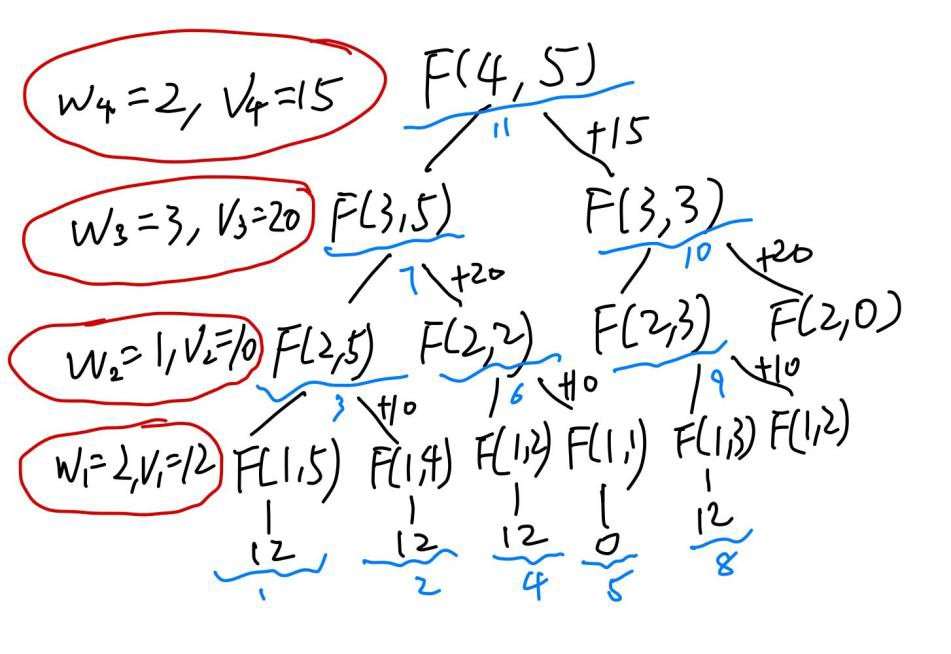 W₄=2, V₄=15 F(4,5)
11 +15
W₃=3, V₃=20 F(3,5) F(3,3)
7 +20 10 +20
W₂=1, V₂=10 F(2,5) F(2,2) F(2,3) F(2,0)
3 +10 6 +10 9 +10
W₁=2, V₁=12 F(1,5) F(1,4) F(1,2) F(1,1) F(1,3) F(1,2)
12 12 12 0 12
1 2 4 5 8